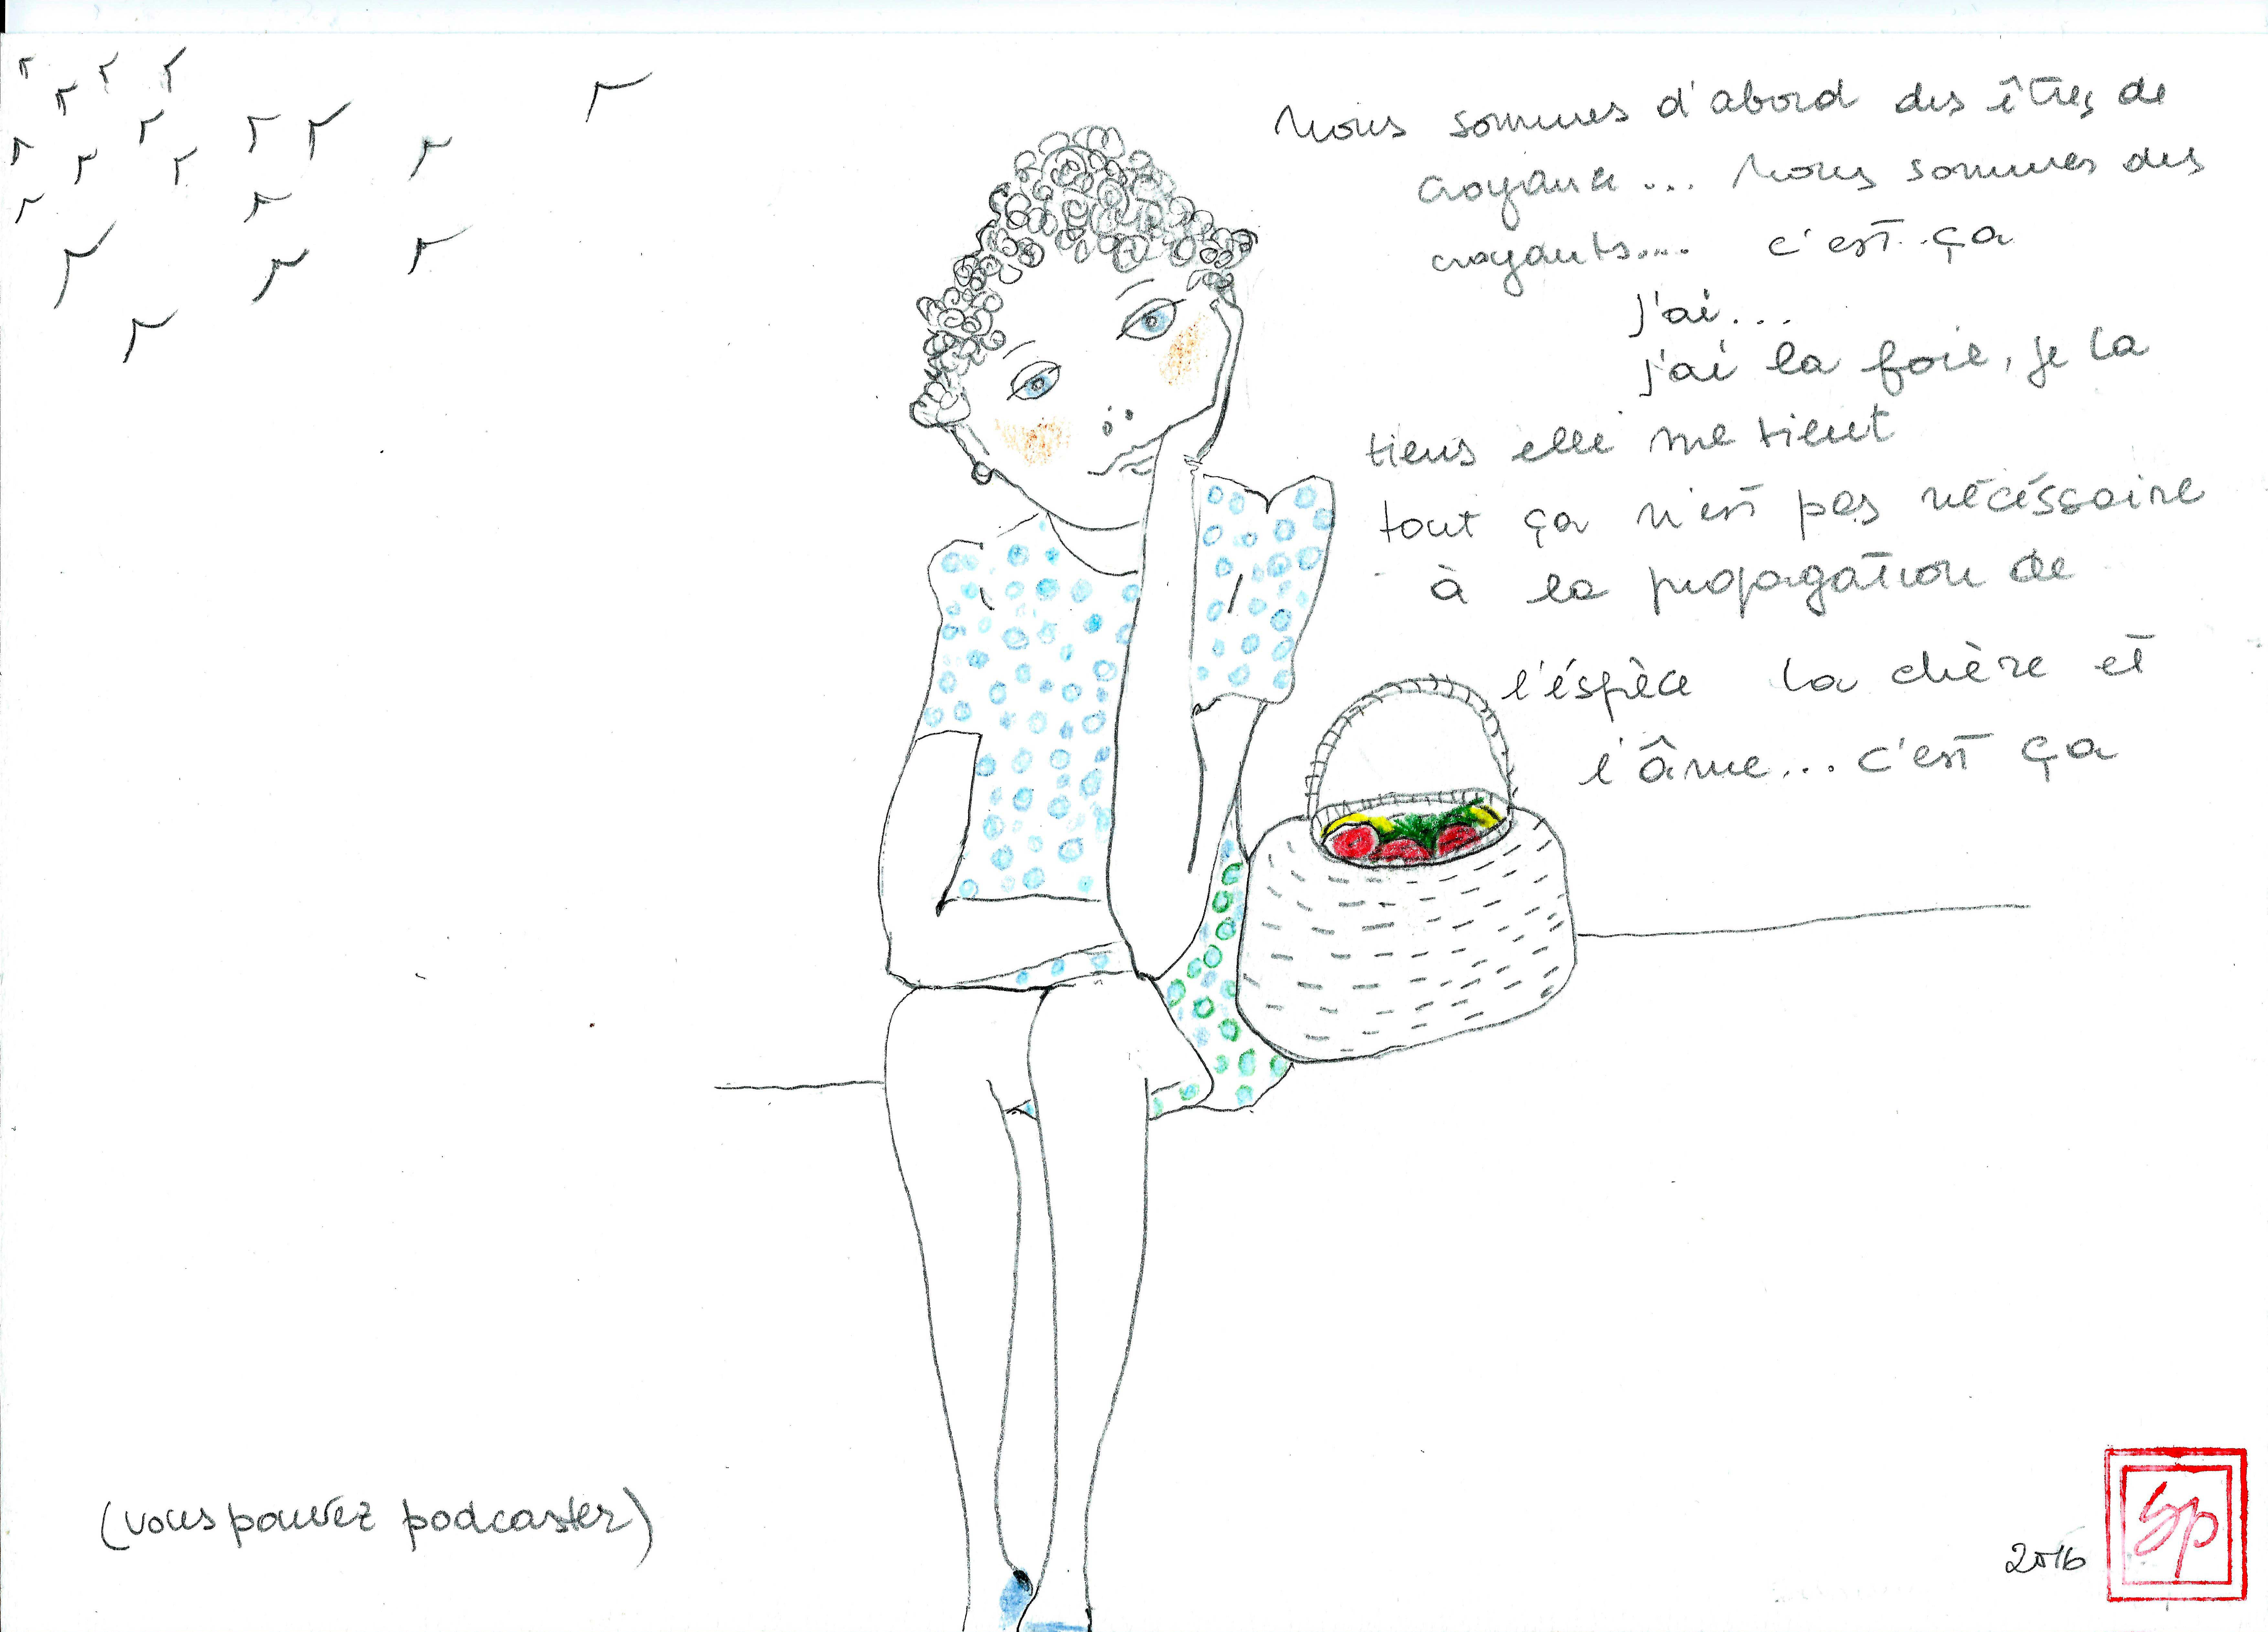 Nous sommes d'abord des êtres de
croyance... Nous sommes des
croyants.... c'est ça
j'ai...
j'ai la foie, je la
tiens elle me tient
tout ça n'est pas nécéssaire
à la propagation de
l'éspèce la chère et
l'âme... c'est ça
(vous pouvez podcaster)
2016
SP